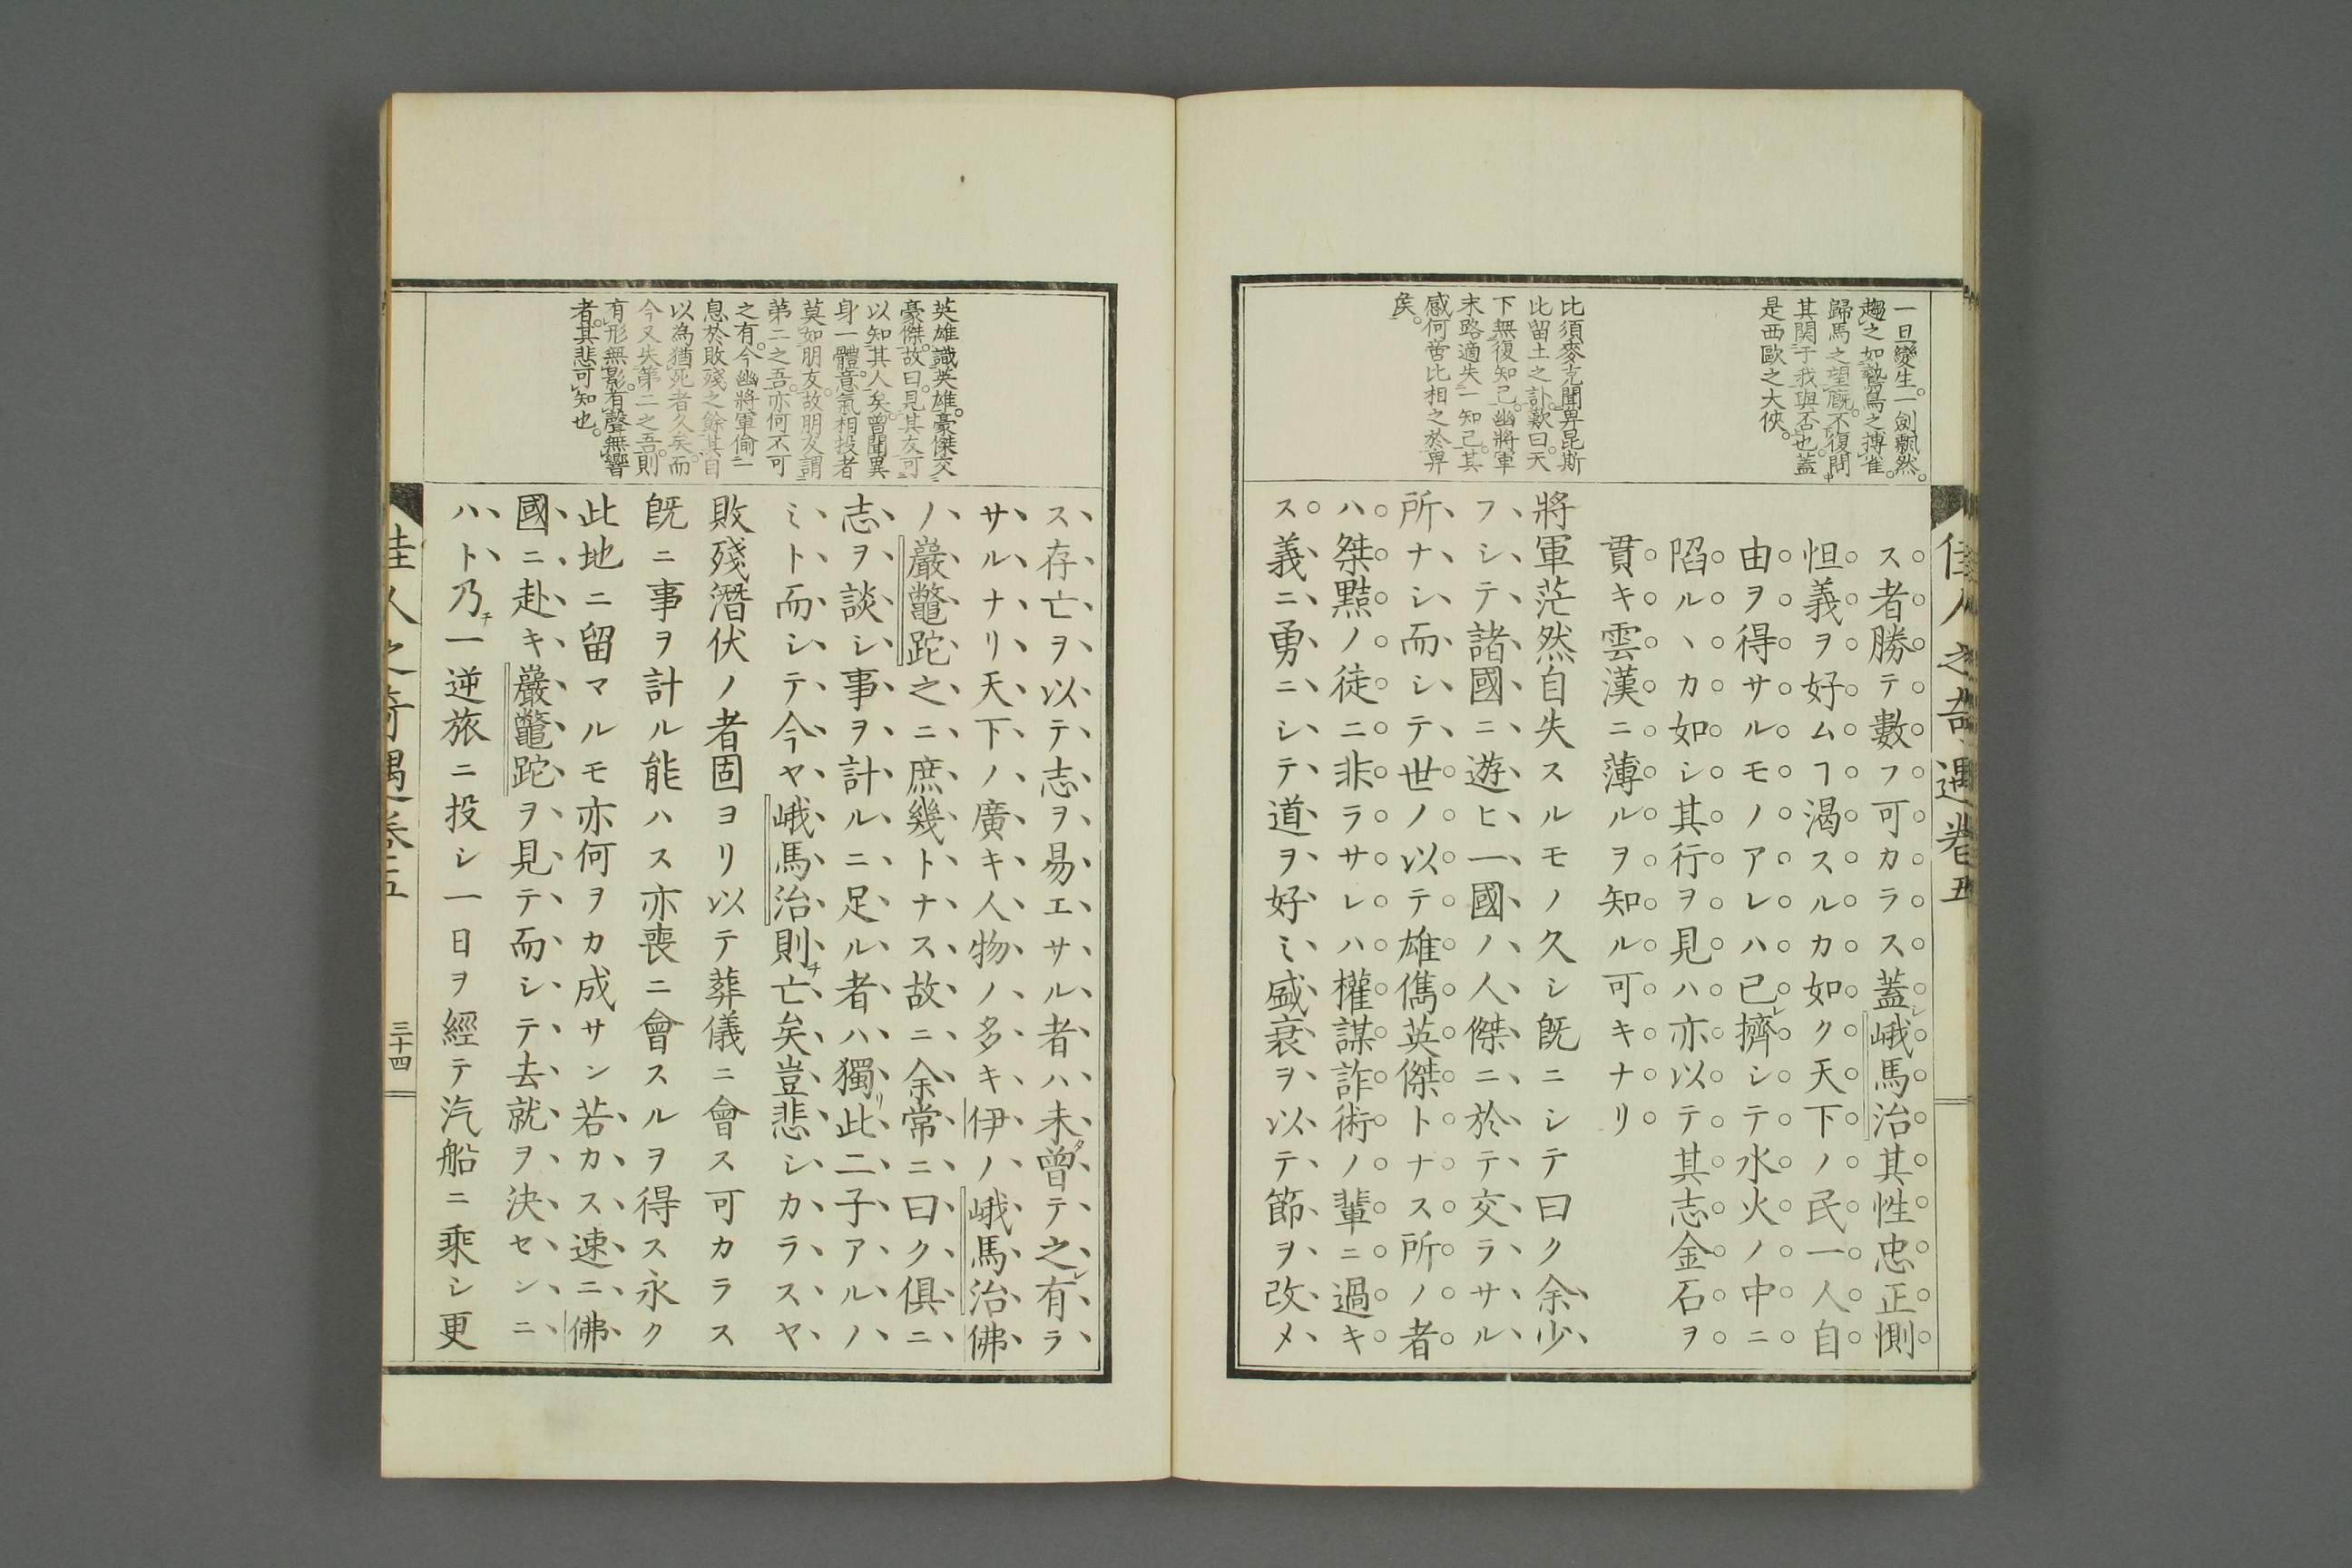 佳人之奇遇卷五
一旦變生。一劍飄然。
趨之如鷙鳥之搏雀。
歸馬之望廐。不復問
其関于我與否也。蓋
是西歐之大俠。
比須麥克聞畀昆斯
比留土之訃歎曰。天
下無復知己。幽將軍
末路適失一知己。其
感何啻比相之於畀
矦。
ス者勝テ數フ可カラス蓋シ峨馬治其性忠正惻
怛義ヲ好ムヿ渴スルカ如ク天下ノ民一人自
由ヲ得サルモノアレハ已レ擠シテ水火ノ中ニ
陷ルヽカ如シ其行ヲ見ハ亦以テ其志金石ヲ
貫キ雲漢ニ薄ルヲ知ル可キナリ
將軍茫然自失スルモノ久シ既ニシテ曰ク余少
フシテ諸國ニ遊ヒ一國ノ人傑ニ於テ交ラサル
所ナシ而シテ世ノ以テ雄儁英傑トナス所ノ者
ハ桀黠ノ徒ニ非ラサレハ權謀詐術ノ輩ニ過キ
ス義ニ勇ニシテ道ヲ好ミ盛衰ヲ以テ節ヲ改メ
英雄識英雄。豪傑交
豪傑。故曰。見其友可
以知其人矣。曾聞異
身一體。意氣相投者
莫如朋友。故朋友謂
第二之吾。亦何不可
之有。今幽將軍偷一
息於敗殘之餘。其自
以為猶死者久矣。而
今又失第二之吾。則
有形無影。有聲無響
者。其悲可知也。
ス存亡ヲ以テ志ヲ易エサル者ハ未タ曾テ之レ有ラ
サルナリ天下ノ廣キ人物ノ多キ伊ノ峨馬治佛
ノ巖鼈跎之ニ庶幾トナス故ニ余常ニ曰ク俱ニ
志ヲ談シ事ヲ計ルニ足ル者ハ獨リ此二子アルノ
ミト而シテ今ヤ峨馬治則チ亡矣豈悲シカラスヤ
敗殘潛伏ノ者固ヨリ以テ葬儀ニ會ス可カラス
既ニ事ヲ計ル能ハス亦喪ニ會スルヲ得ス永ク
此地ニ留マルモ亦何ヲカ成サン若カス速ニ佛
國ニ赴キ巖鼈跎ヲ見テ而シテ去就ヲ決センニ
ハト乃チ一逆旅ニ投シ一日ヲ經テ汽船ニ乘シ更
佳人之奇遇卷五
三十四